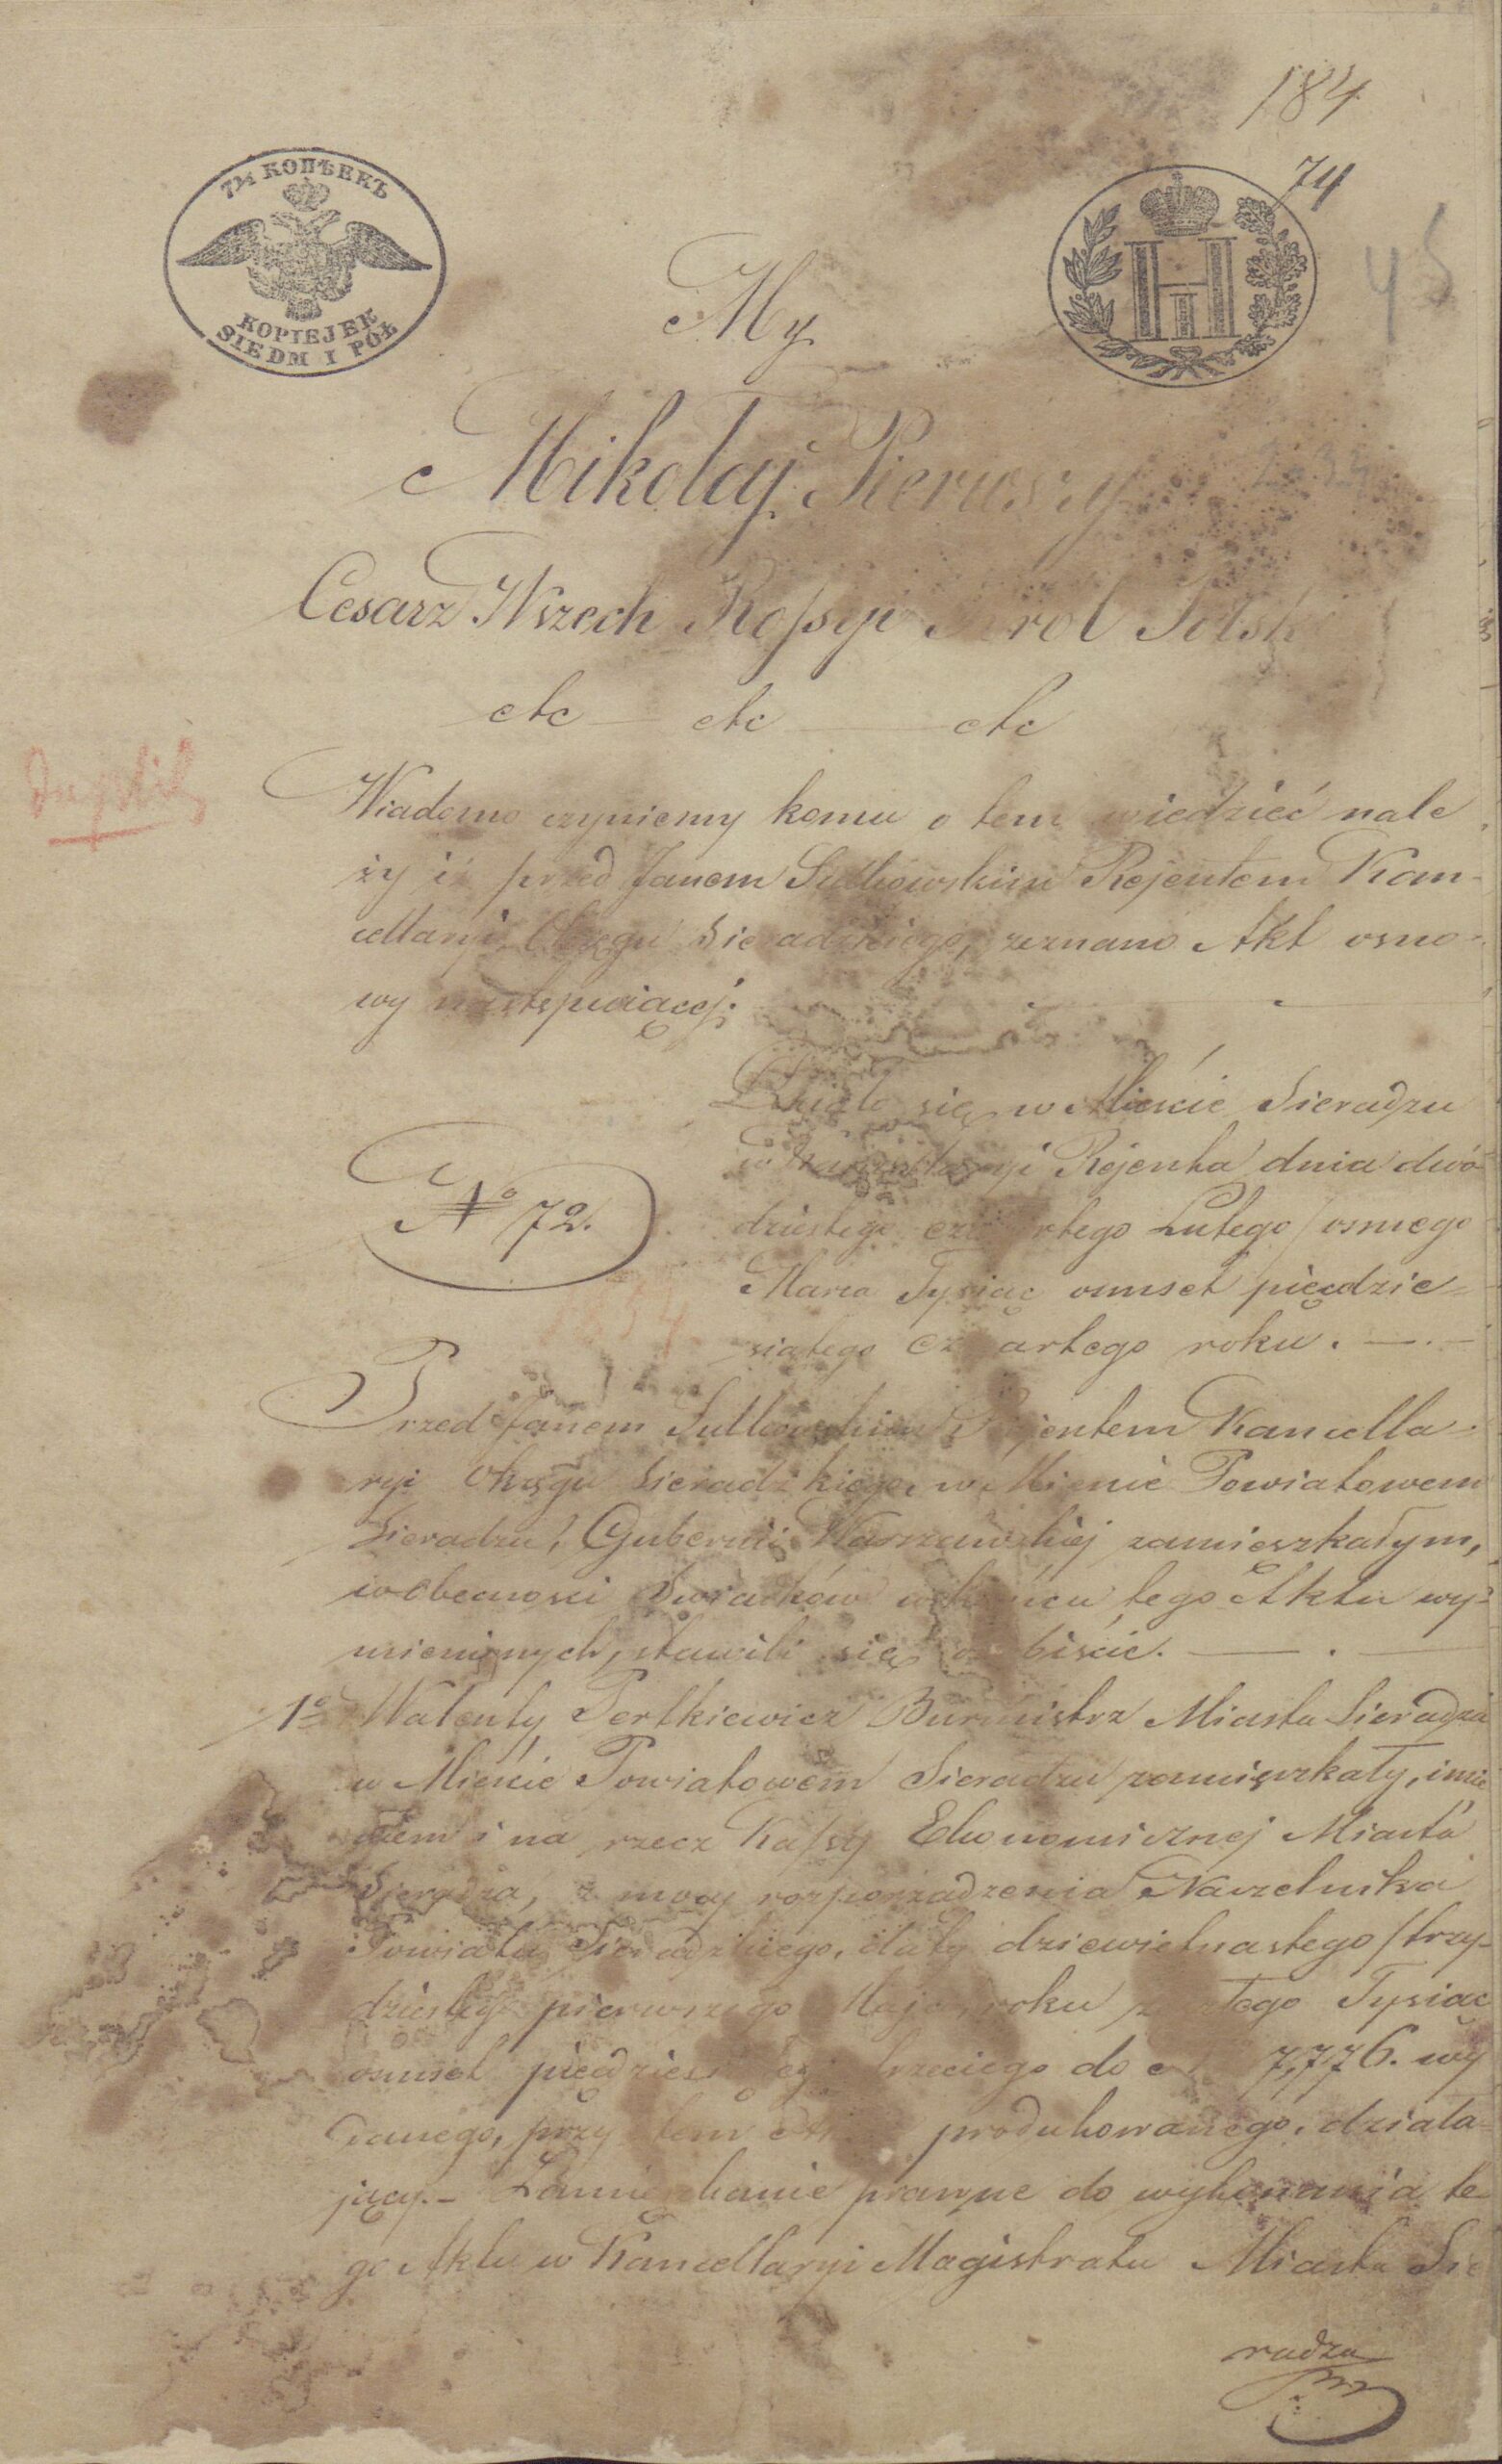 184
74
7½ КОПѢЕКЪ
KOPIEJEK
SIEDM I PÓŁ
H I
45
My
Mikolaj Pierwszy
Cesarz Wszech Rossyi Krol Polski
etc — etc — etc
Wiadomo czyniemy komu o tem wiedzieć nale
ży iż przed Janem Rejentem Kan-
cellaryi Okręgu Sieradzkiego, zeznano Akt osno-
wy następuiącej.
Działo się w Mieście Sieradzu
w Kancellaryi Rejenta dnia dwó
dziestego czwartego Lutego / osmego
Marca Tysiąc osmset pięćdzie-
siątego czwartego roku. —
No 72.
Przed Janem Rejentem Kancella-
ryi Okręgu Sieradzkiego, w Mieście Powiatowem
Sieradzu, Gubernii Warszawskiej zamieszkałym,
w obecności Świadków w końcu tego Aktu wy-
mienionych, stawili się osobiście. —
1o Walenty Pertkiewicz Burmistrz Miasta Sieradza
w Mieście Powiatowem Sieradzu zamieszkały, imie
niem i na rzecz Kassy Ekonomicznej Miasta
Sieradza, z mocy rozporządzenia Naczelnika
Powiatu Sieradzkiego, daty dziewietnastego / trzy-
dziestego pierwszego Maja, roku zeszłego Tysiąc
osmset pięćdziesiątego trzeciego do 7,776. wy
danego, przy tem produkowanego, działa-
jący. – Zamieszkanie prawne do wykonania te-
go Aktu w Kancellaryi Magistratu Miasta Sie
radza